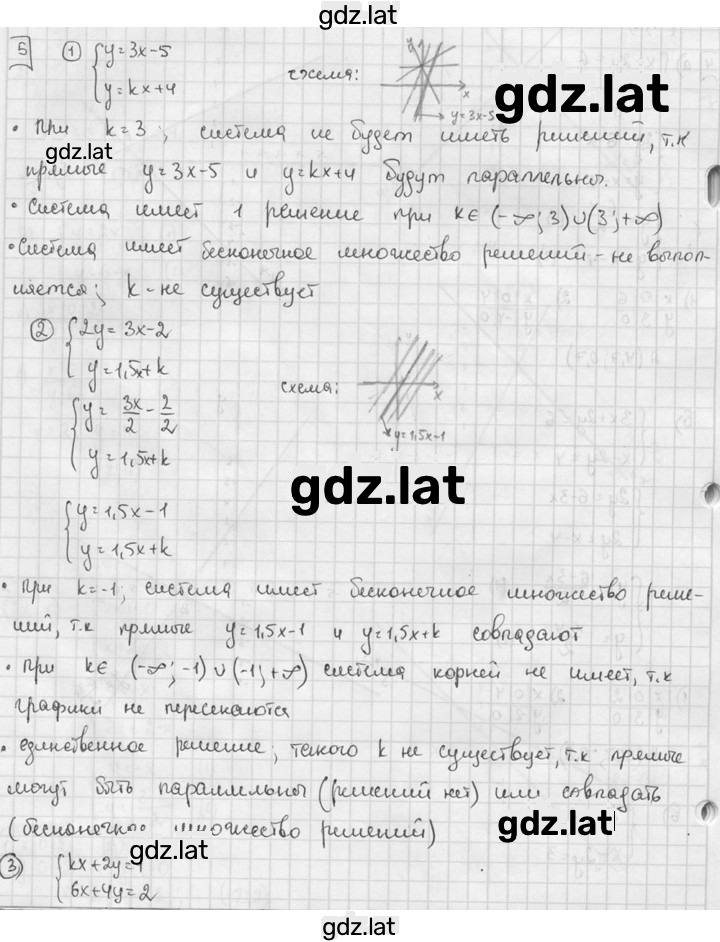 gdz.lat
5 ① { y = 3x - 5
{ y = kx + 4
схема: y x y = 3x-5
gdz.lat
• При k = 3 ; система не будет иметь решений, т.к
gdz.lat
прямые y = 3x - 5 и y = kx + 4 будут параллельны.
• Система имеет 1 решение при k ∈ (-∞; 3) ∪ (3; +∞)
• Система имеет бесконечное множество решений - не выпол-
няется; k - не существует
② { 2y = 3x - 2
{ y = 1,5x + k
схема: x y = 1,5x - 1
{ y = 3x/2 - 2/2
{ y = 1,5x + k
gdz.lat
{ y = 1,5x - 1
{ y = 1,5x + k
• При k = -1; система имеет бесконечное множество реше-
ний, т.к прямые y = 1,5x - 1 и y = 1,5x + k совпадают
• При k ∈ (-∞; -1) ∪ (-1; +∞) система корней не имеет, т.к
графики не пересекаются
• единственное решение; такого k не существует, т.к прямые
могут быть параллельны (решений нет) или совпадать
(бесконечное множество решений)
gdz.lat
gdz.lat
③ { kx + 2y = 1
{ 6x + 4y = 2
gdz.lat